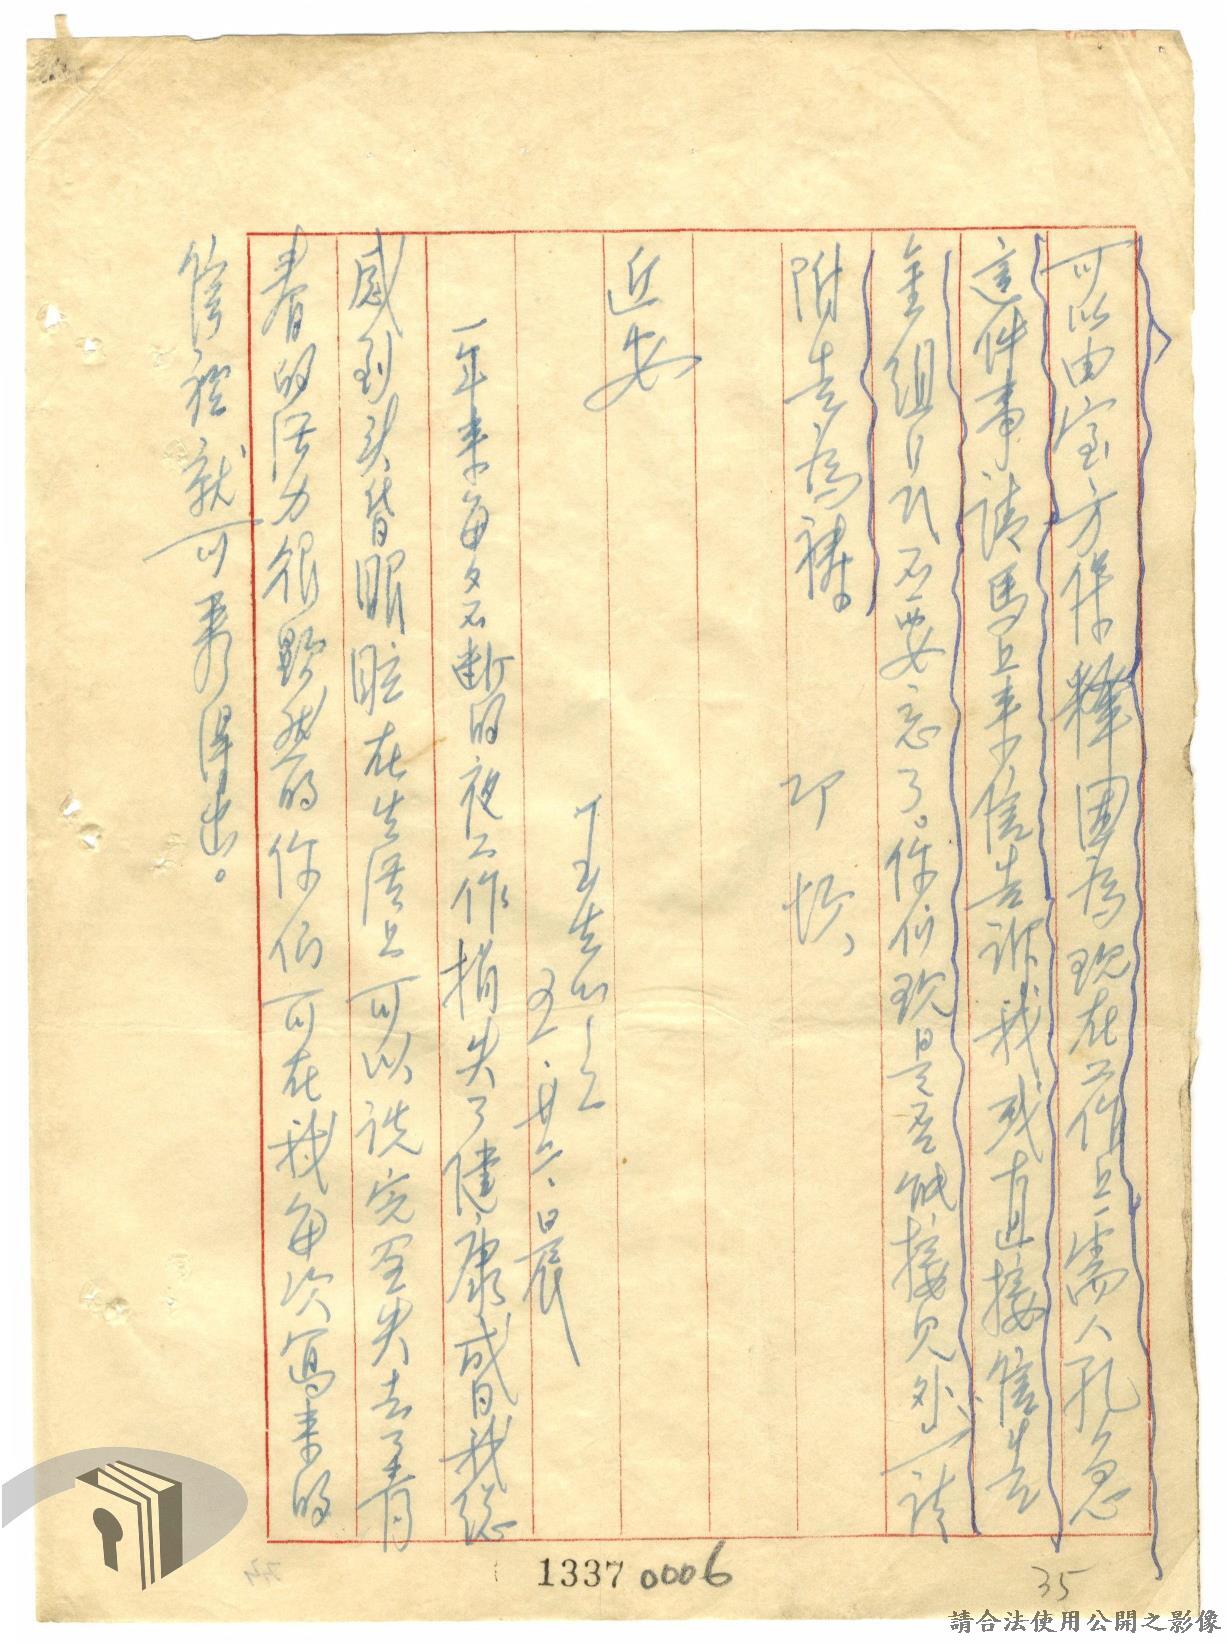 可以由室方保釋因為現在工作上需人孔急
這件事請馬上來信告訴我或直接信告
金組日不要忘了。你們現是否能接見外請
附告為禱。
即頌、
近安
五、廿六、晨
一年來每夕不斷的夜工作損失了健康成日我總
感到头昏眼眩在生活上可以説完全失去了青
春的活力很顯然的你们可在我每次寫來的
信裡就可看得出。
1337 0006
35
請合法使用公開之影像